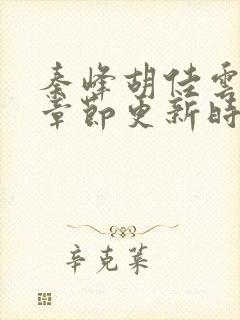 秦峰胡佳雲
章節更新時
辛克萊